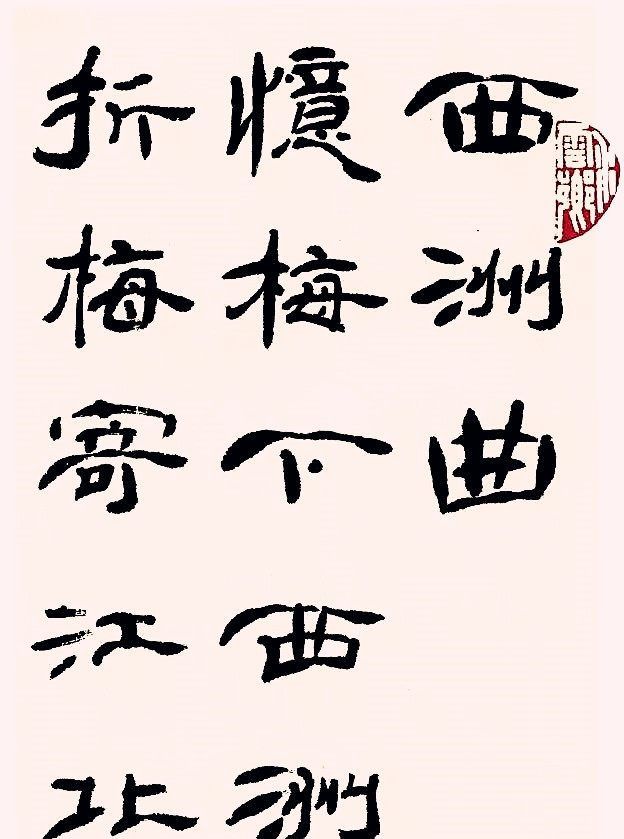 西洲曲
憶梅下西洲
折梅寄江北